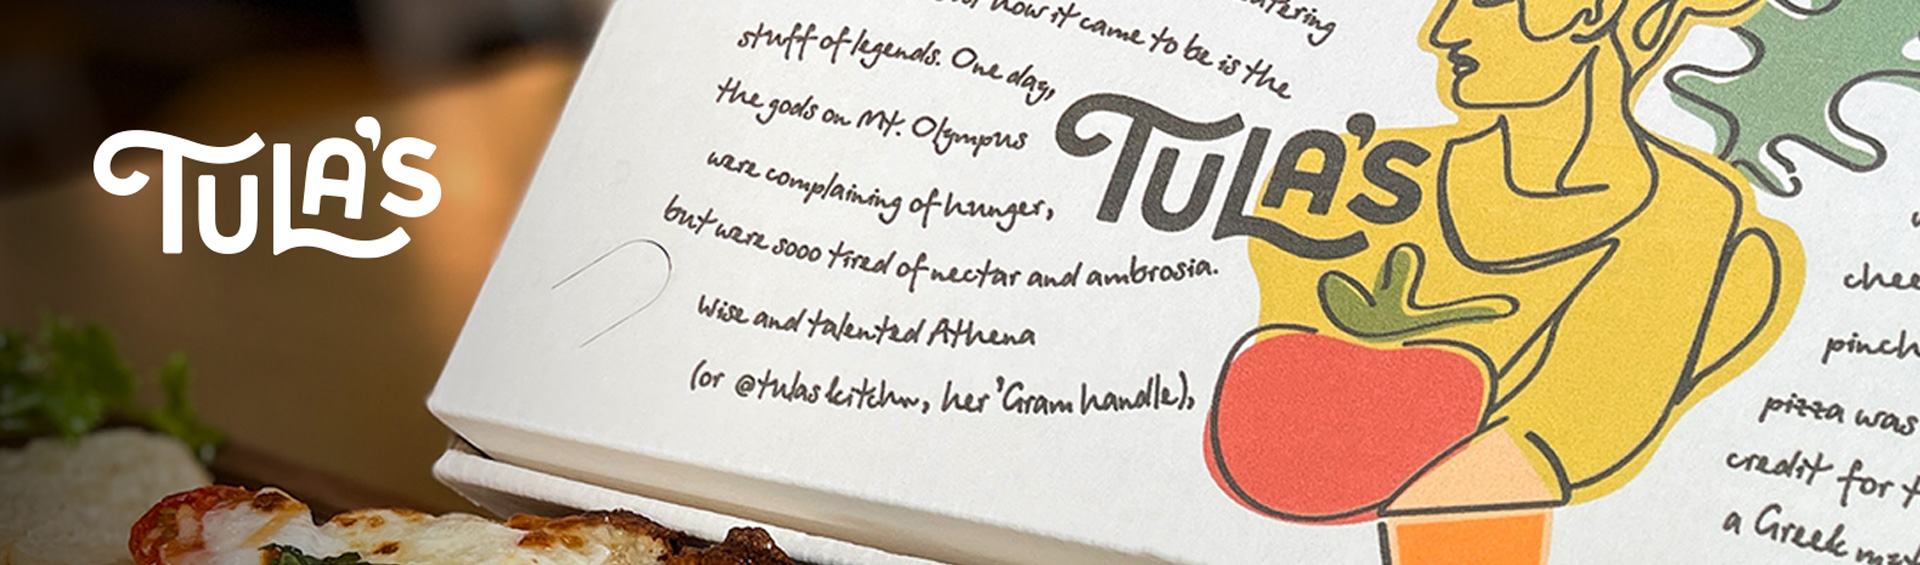 TULA'S
now it came to be is the
stuff of legends. One day,
the gods on Mt. Olympus
were complaining of hunger,
but were sooo tired of nectar and ambrosia.
Wise and talented Athena
(or @tulaskitchn, her 'Gram handle),
TULA'S
pizza was
credit for
a Greek